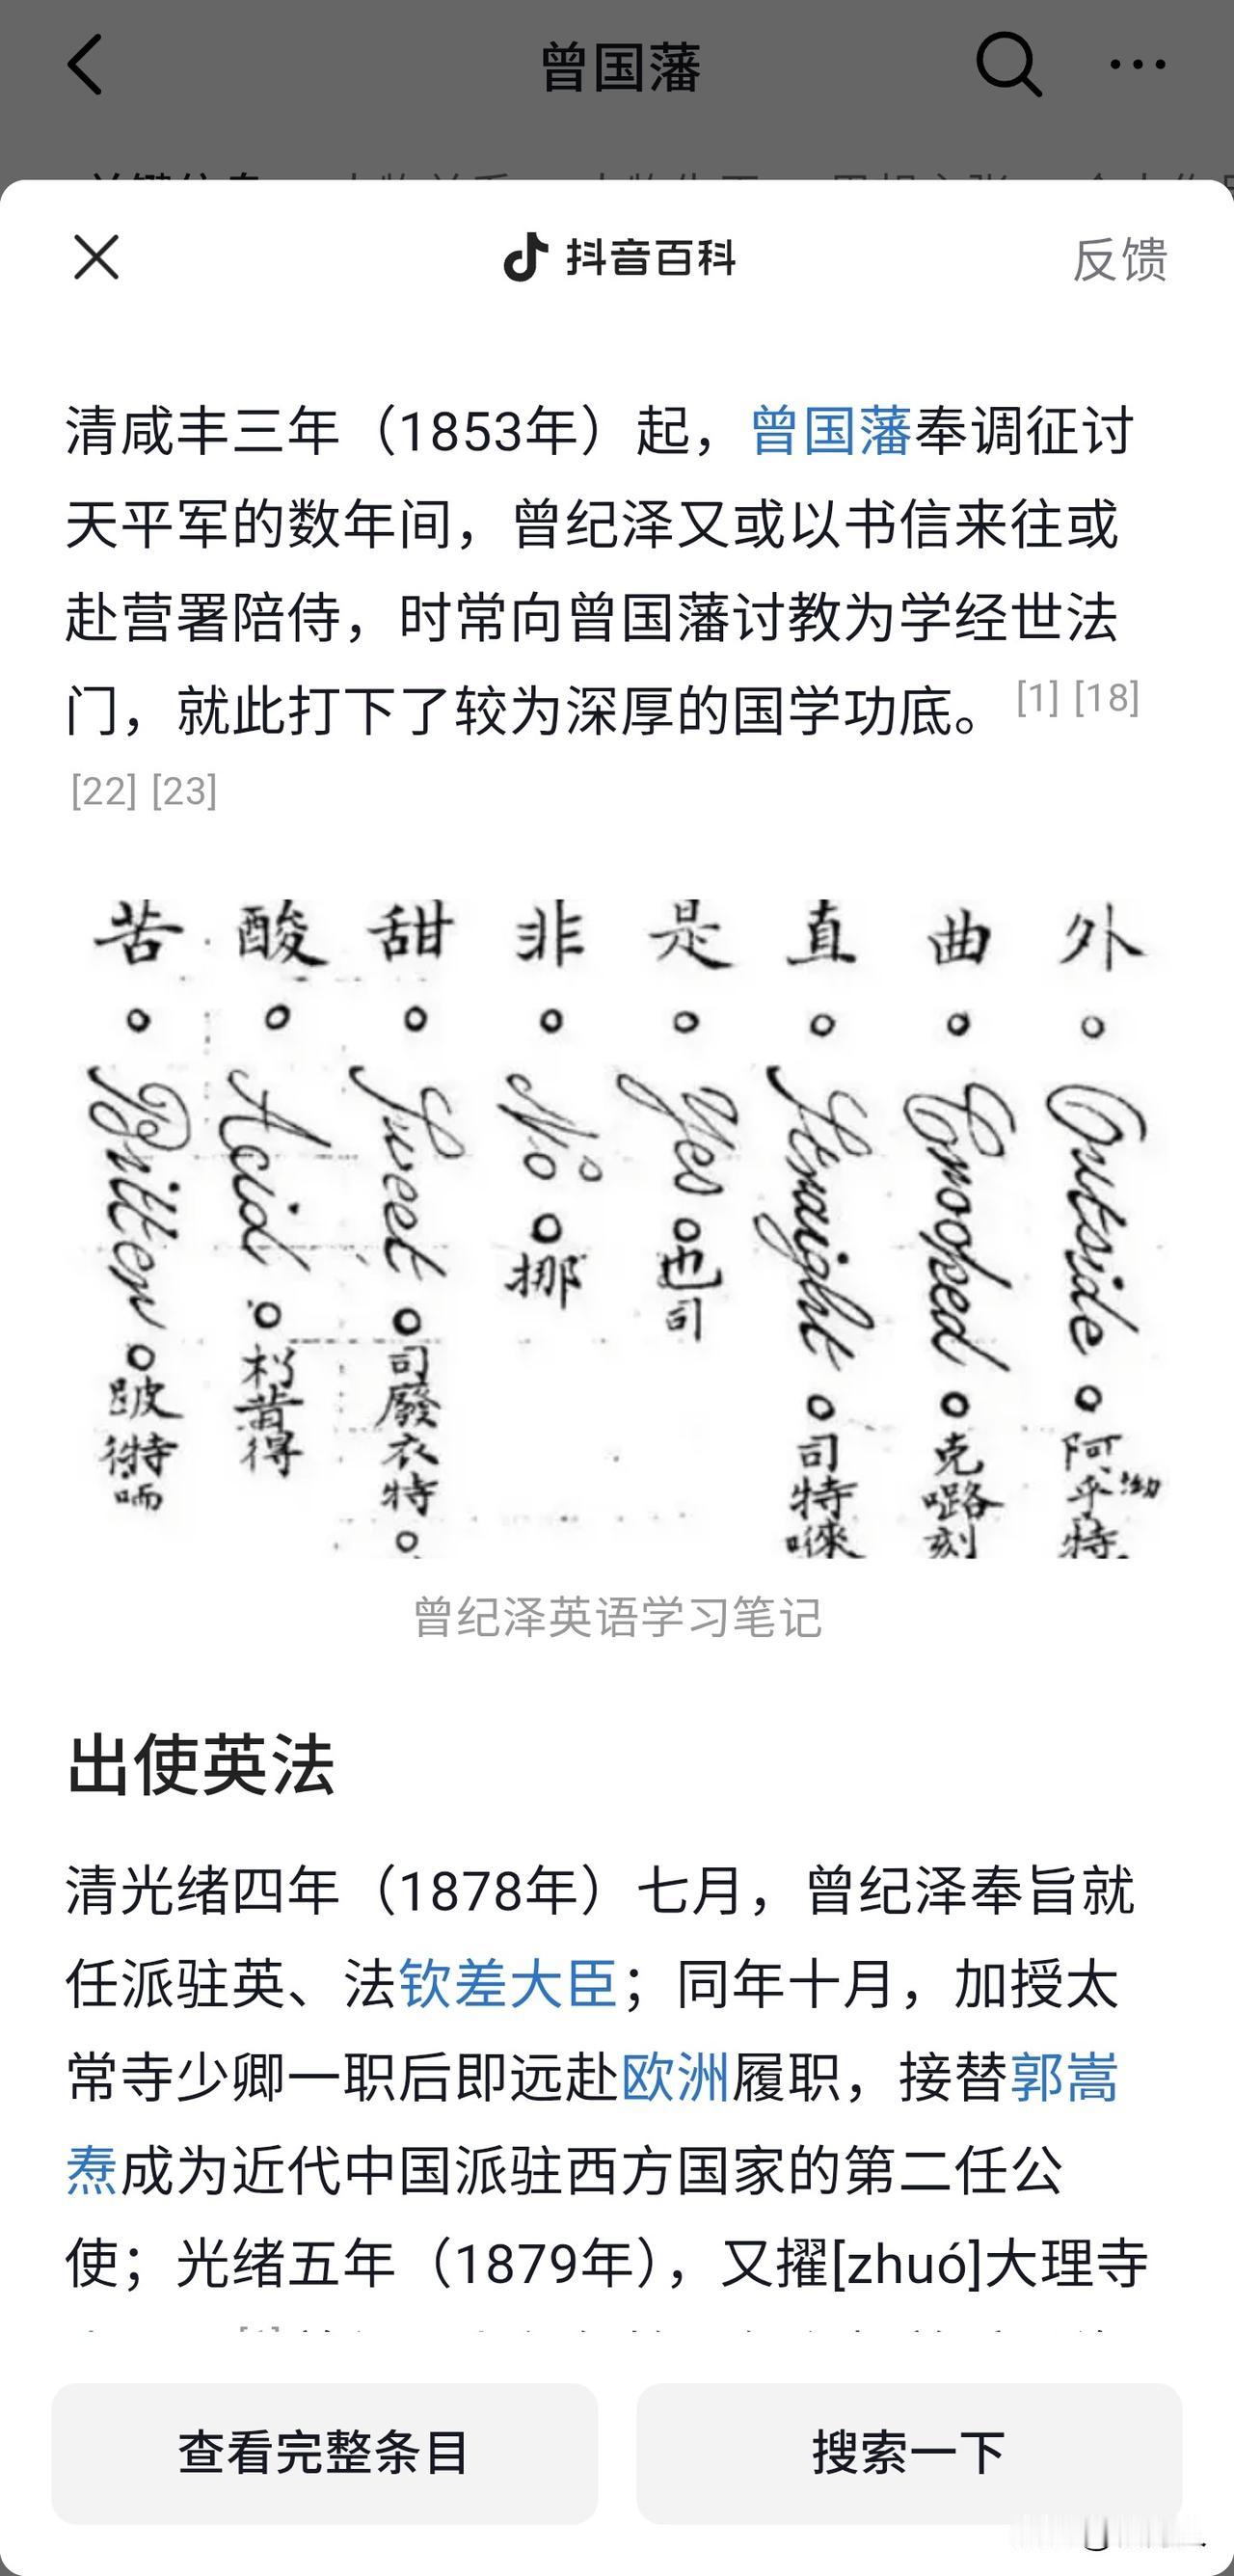 曾国藩
抖音百科
反馈
清咸丰三年（1853年）起，曾国藩奉调征讨
天平军的数年间，曾纪泽又或以书信来往或
赴营署陪侍，时常向曾国藩讨教为学经世法
门，就此打下了较为深厚的国学功底。[1] [18]
[22] [23]
外 Outside 阿乎特
曲 Crooped 克嚕刻
直 Straight 司特
是 Yes 也司
非 No 挪
甜 Sweet 司廢衣特
酸 Acid
苦 Bitter
曾纪泽英语学习笔记
出使英法
清光绪四年（1878年）七月，曾纪泽奉旨就
任派驻英、法钦差大臣；同年十月，加授太
常寺少卿一职后即远赴欧洲履职，接替郭嵩
焘成为近代中国派驻西方国家的第二任公
使；光绪五年（1879年），又擢[zhuó]大理寺
查看完整条目
搜索一下